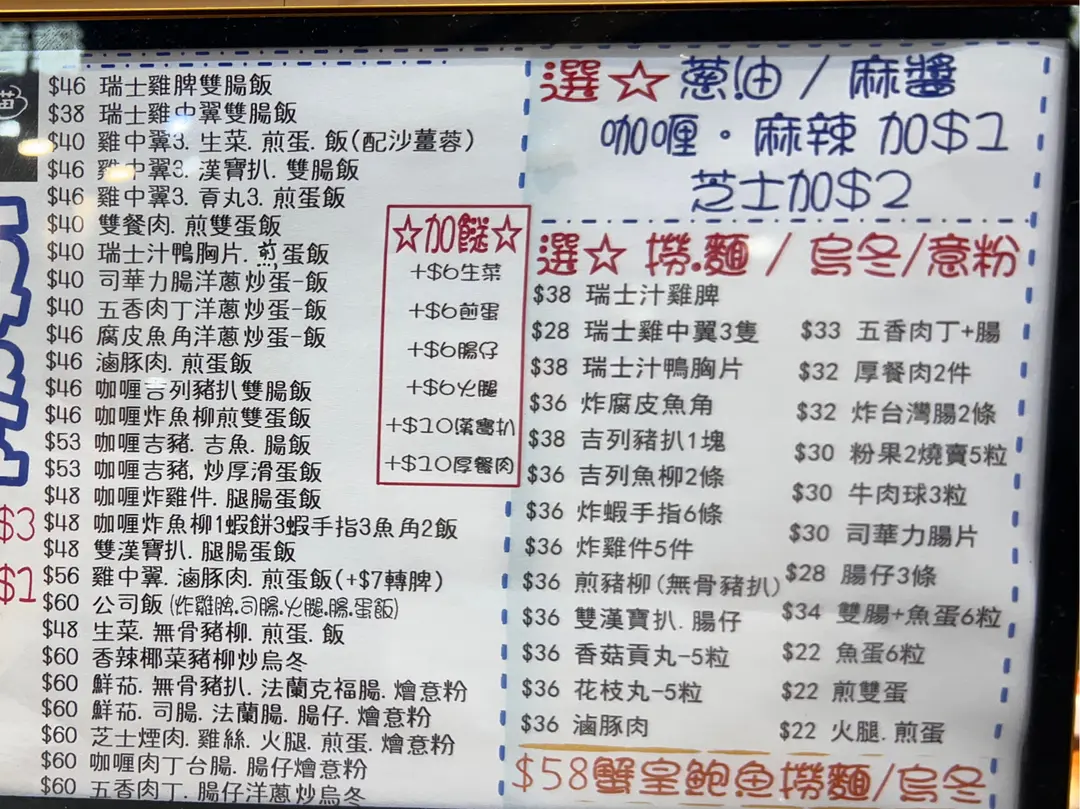 $46 瑞士雞脾雙腸飯
$38 瑞士雞中翼雙腸飯
$40 雞中翼3. 生菜. 煎蛋. 飯(配沙薑蓉)
$46 雞中翼3. 漢寶扒. 雙腸飯
$46 雞中翼3. 貢丸3. 煎蛋飯
$40 雙餐肉. 煎雙蛋飯
$40 瑞士汁鴨胸片. 煎蛋飯
$40 司華力腸洋蔥炒蛋-飯
$40 五香肉丁洋蔥炒蛋-飯
$46 腐皮魚角洋蔥炒蛋-飯
$46 滷豚肉. 煎蛋飯
$46 咖喱吉列豬扒雙腸飯
$46 咖喱炸魚柳煎雙蛋飯
$53 咖喱吉豬. 吉魚. 腸飯
$53 咖喱吉豬, 炒厚滑蛋飯
$48 咖喱炸雞件. 腿腸蛋飯
$48 咖喱炸魚柳1蝦餅3蝦手指3魚角2飯
$48 雙漢寶扒. 腿腸蛋飯
$56 雞中翼. 滷豚肉. 煎蛋飯(+$7轉脾)
$60 公司飯(炸雞脾.司腸.火腿.腸.蛋飯)
$48 生菜. 無骨豬柳. 煎蛋. 飯
$60 香辣椰菜豬柳炒烏冬
$60 鮮茄. 無骨豬扒. 法蘭克福腸. 燴意粉
$60 鮮茄. 司腸. 法蘭腸. 腸仔. 燴意粉
$60 芝士煙肉. 雞絲. 火腿. 煎蛋. 燴意粉
$60 咖喱肉丁台腸. 腸仔燴意粉
$60 五香肉丁. 腸仔洋蔥炒烏冬
$3
$1
☆加餸☆
+$6生菜
+$6煎蛋
+$6腸仔
+$6火腿
+$10漢寶扒
+$10厚餐肉
選☆蔥油 / 麻醬
咖喱・麻辣 加$1
芝士加$2
選☆ 撈麵 / 烏冬/意粉
$38 瑞士汁雞脾
$28 瑞士雞中翼3隻
$38 瑞士汁鴨胸片
$36 炸腐皮魚角
$38 吉列豬扒1塊
$36 吉列魚柳2條
$36 炸蝦手指6條
$36 炸雞件5件
$36 煎豬柳(無骨豬扒)
$36 雙漢寶扒. 腸仔
$36 香菇貢丸-5粒
$36 花枝丸-5粒
$36 滷豚肉
$33 五香肉丁+腸
$32 厚餐肉2件
$32 炸台灣腸2條
$30 粉果2燒賣5粒
$30 牛肉球3粒
$30 司華力腸片
$28 腸仔3條
$34 雙腸+魚蛋6粒
$22 魚蛋6粒
$22 煎雙蛋
$22 火腿. 煎蛋
$58蟹皇鮑魚撈麵/烏冬